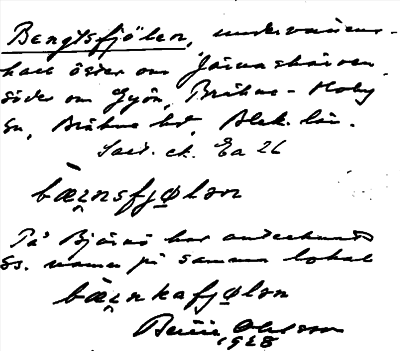 Bengtsfjölen, undervattens-
kant öster om Järnaskären,
söder om Gyön, Bräkne-Hoby
sn, Bräkne hd, Blek. län.
ek. Ea 26
bæŋnsfjølən
På Björnö har antecknats
ss. namn på samma lokal
bæŋnkafjølən
Olsson
1928